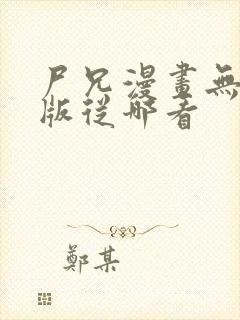 尸兄漫畫無
版從哪看
鄭某